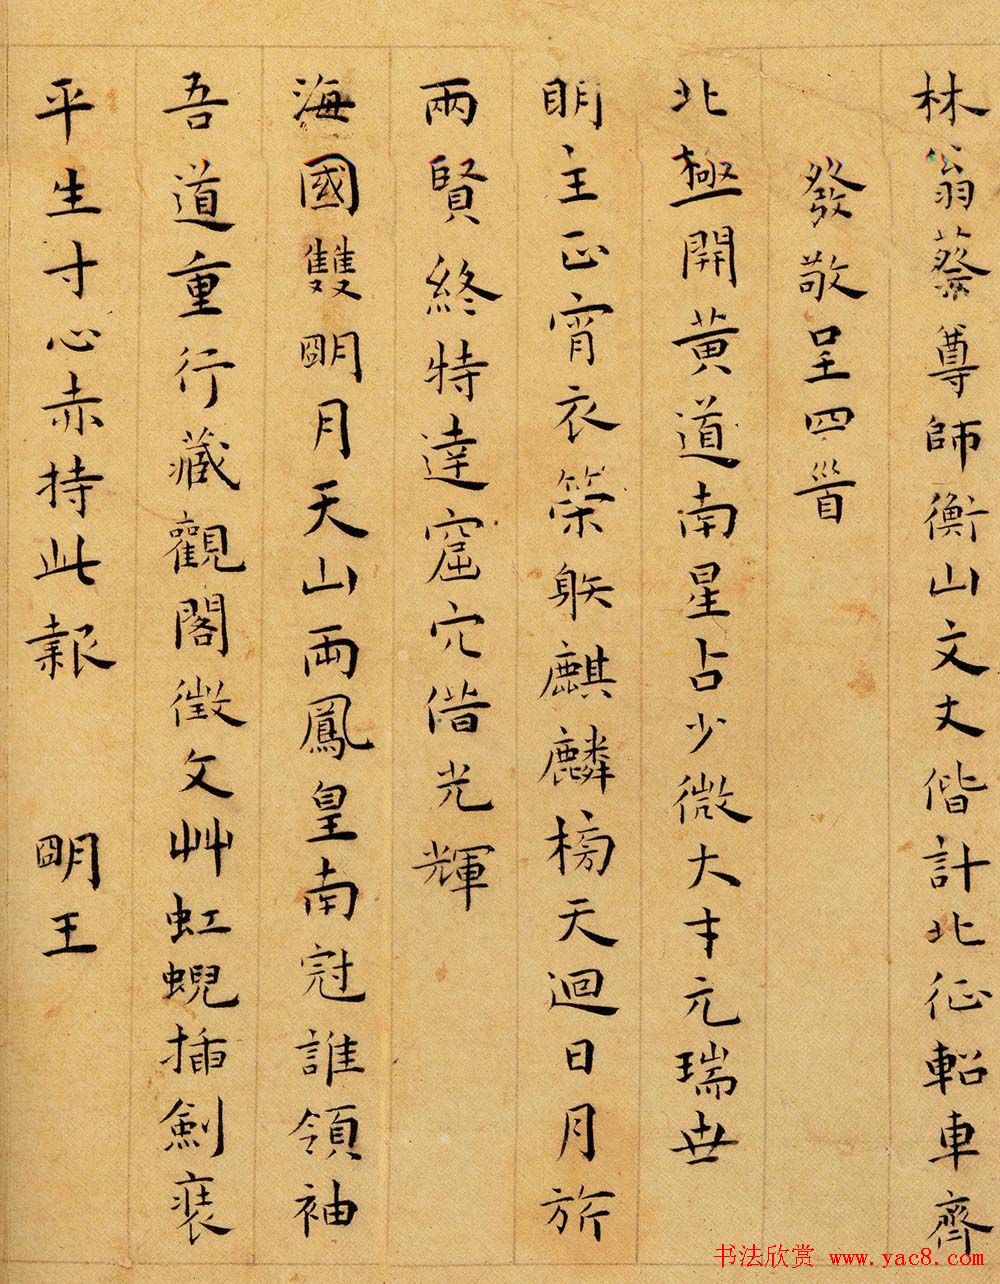 林翁蔡尊師衡山文丈偕計北征軺車齊
發敬呈四首
北極開黃道南星占少微大才元瑞世
明主正宵衣榮映麒麟榜天迴日月旂
兩賢終特達窟穴借光輝
海國雙明月天山兩鳳皇南冠誰領袖
吾道重行藏觀閣徵文艸虹蜺插劍裝
平生寸心赤持此報 明王
书法欣赏 www.yac8.com